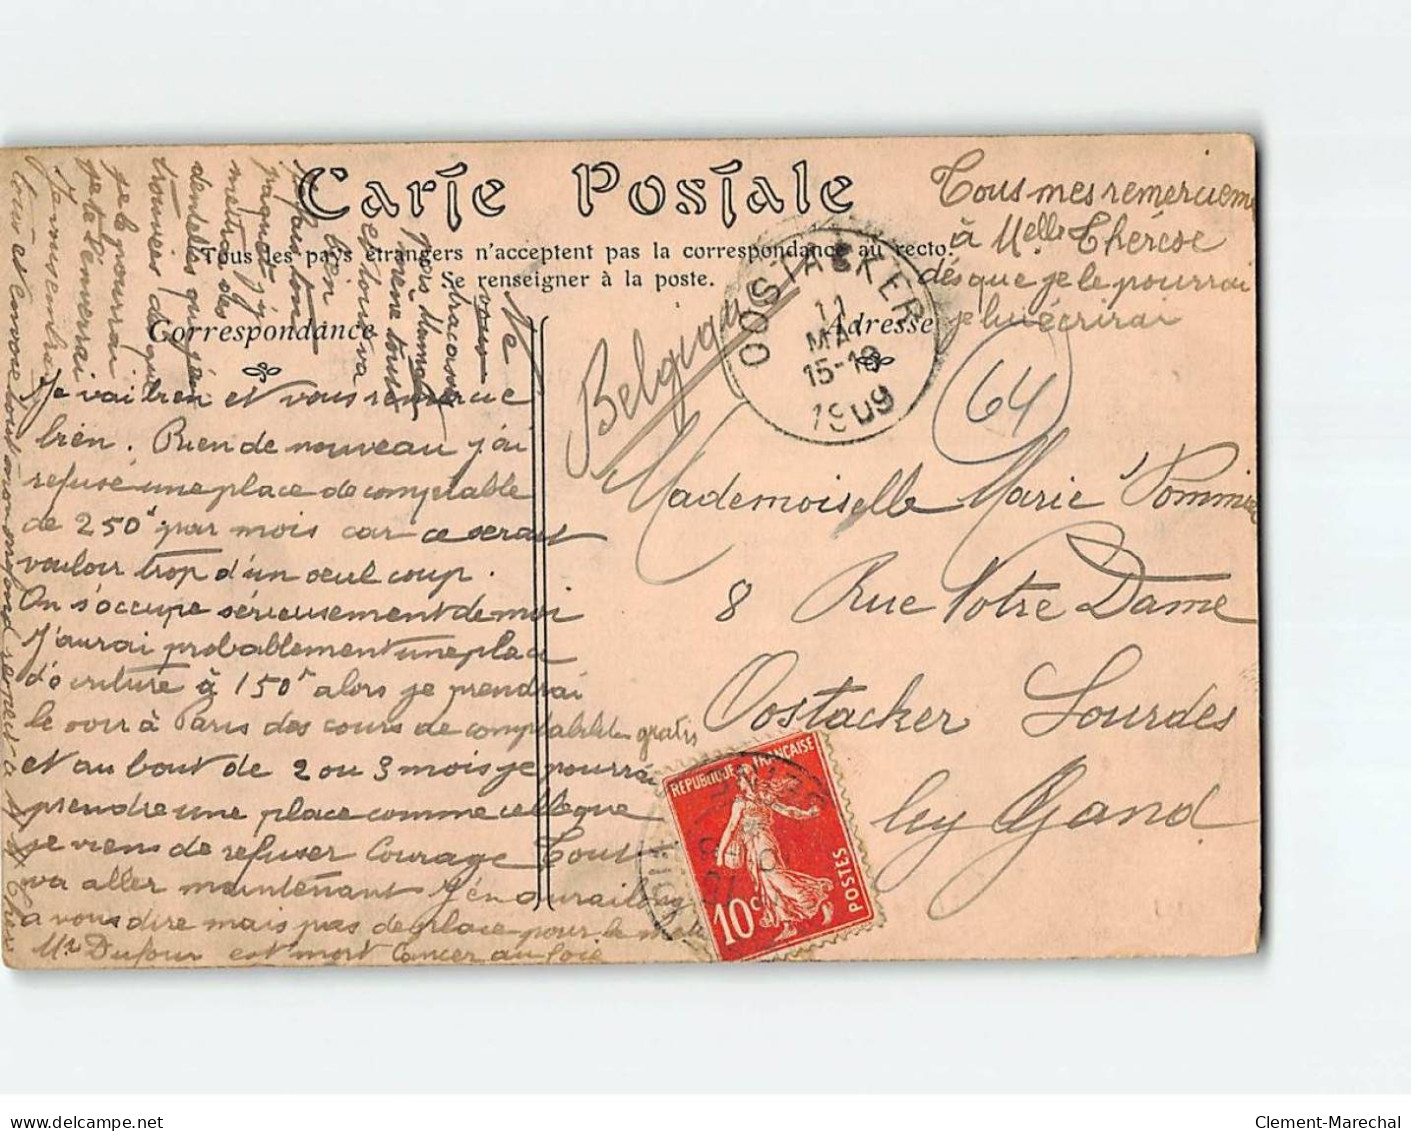 Carte Postale
Tous les pays étrangers n'acceptent pas la correspondance au recto.
Se renseigner à la poste.
Correspondance
Adresse
Tous mes remerciem
à Melle Thérèse
dés que je le pourrai
je lui écrirai
OOSTACKER
11
MA
15-18
1909
Belgique
64
Mademoiselle Marie Pommier
8 Rue Notre Dame
Oostacker Lourdes
lez Gand
REPUBLIQUE FRANÇAISE
POSTES
10c
Je vai bien et vous remercie
bien. Rien de nouveau j'ai
refusé une place de comptable
de 250f par mois car ce serait
vouloir trop d'un seul coup.
On s'occupe sérieusement de moi
J'aurai probablement une place
d'écriture à 150f alors je prendrai
le soir à Paris des cours de comptabilité gratis
et au bout de 2 ou 3 mois je pourrai
prendre une place comme celle que
je viens de refuser Courage Tout
va aller maintenant J'en aurai long
a vous dire mais pas de place pour le mettre
Mr Dufour est mort Cancer au foie
Ne
vous
tracassez
pas Maman
même tout
est
bien
va
il faut ton
paquet j'y
mettrai des
dentelles que j'ai
trouvées dès que
je le pourrai
je te l'enverrai
Je vous embrasse